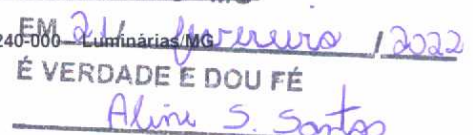 EM 21/ fevereiro / 2022
240-000 - Luminárias/MG
É VERDADE E DOU FÉ
Aline S. Santos